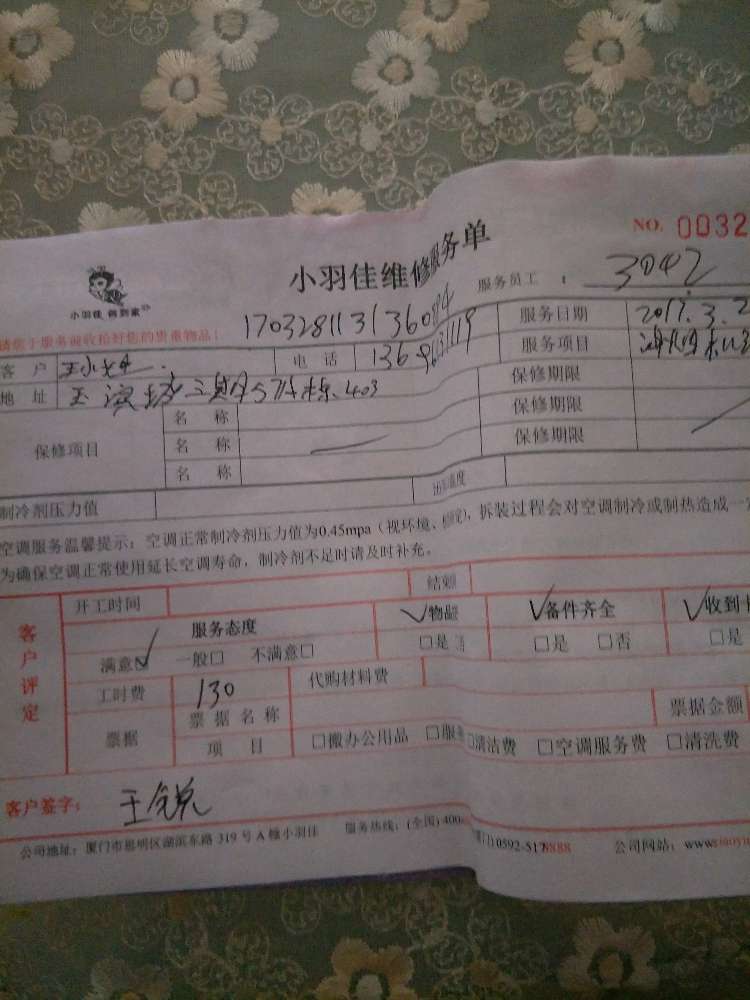 NO. 0032
小羽佳维修服务单
小羽佳 佣到家
服务员工：3042
请您于服务前收拾好您的贵重物品！
客户 王小姐 电话 服务日期 2017.3.2
服务项目
地址 403 保修期限
保修项目 名称 保修期限
名称 保修期限
名称
制冷剂压力值 出风温度
空调服务温馨提示：空调正常制冷剂压力值为0.45mpa（视环境、 ，拆装过程会对空调制冷或制热造成一定
为确保空调正常使用延长空调寿命，制冷剂不足时请及时补充。
客户评定
开工时间 结束
服务态度 物品 备件齐全 收到
满意 一般□ 不满意□ □是 □是 □否 □是
工时费 130 代购材料费
票据 票据名称 票据金额
项目 □搬办公用品 □服务 □清洁费 □空调服务费 □清洗费
客户签字：王锐
公司地址：厦门市思明区湖滨东路319号A幢小羽佳 服务热线：(全国)400 0592-5178888 公司网站：www.xiaoyu